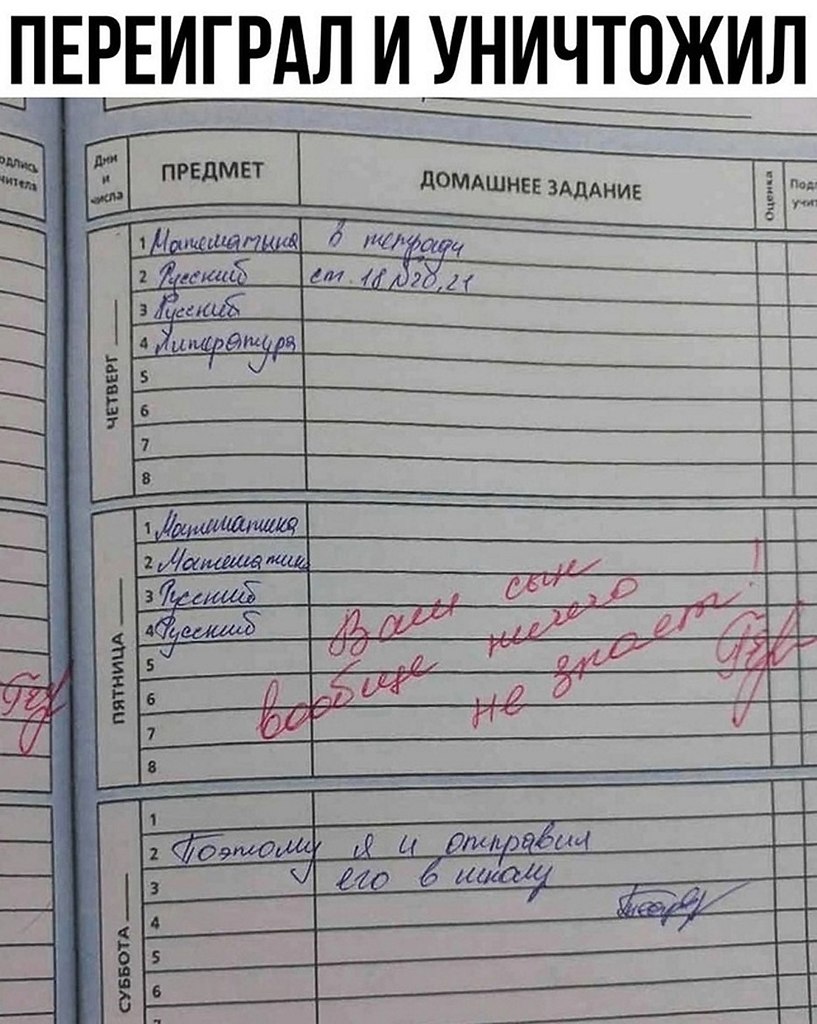 ПЕРЕИГРАЛ И УНИЧТОЖИЛ
Дни и числа
ПРЕДМЕТ
ДОМАШНЕЕ ЗАДАНИЕ
Оценка
ЧЕТВЕРГ
1 Математика в тетради
2 Русский ст. 18 №20,21
3 Русский
4 Литература
5
6
7
8
ПЯТНИЦА
1 Математика
2 Математик
3 Русский
4 Русский
5
6
7
8
Ваш сын
вообще ничего
не знает!
СУББОТА
1
2 Поэтому я и отправил
3 его в школу
4
5
6